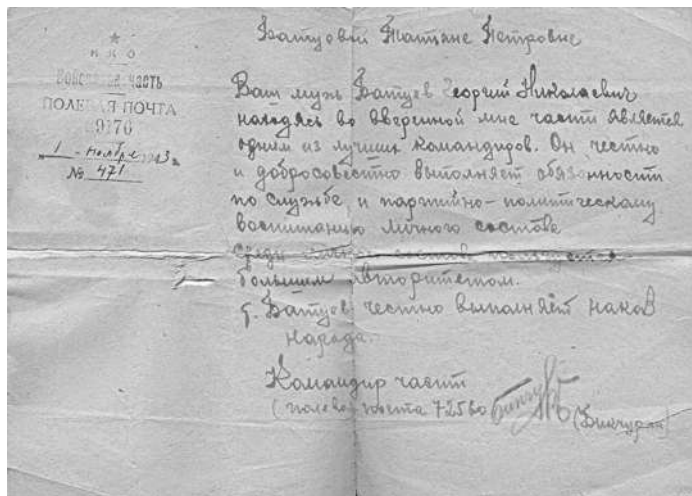 Н К О
Войсковая часть
ПОЛЕВАЯ ПОЧТА
"1" ноября 1943
№ 471
Батуевой Татьяне Петровне
Ваш муж Батуев Георгий Николаевич
находясь во вверенной мне части является
одним из лучших командиров. Он честно
и добросовестно выполняет обязанности
по службе и партийно-политическому
воспитанию личного состава
среди личного состава пользуется
большим авторитетом.
т. Батуев честно выполняет наказ
народа.
Командир части
(полевая почта 72560